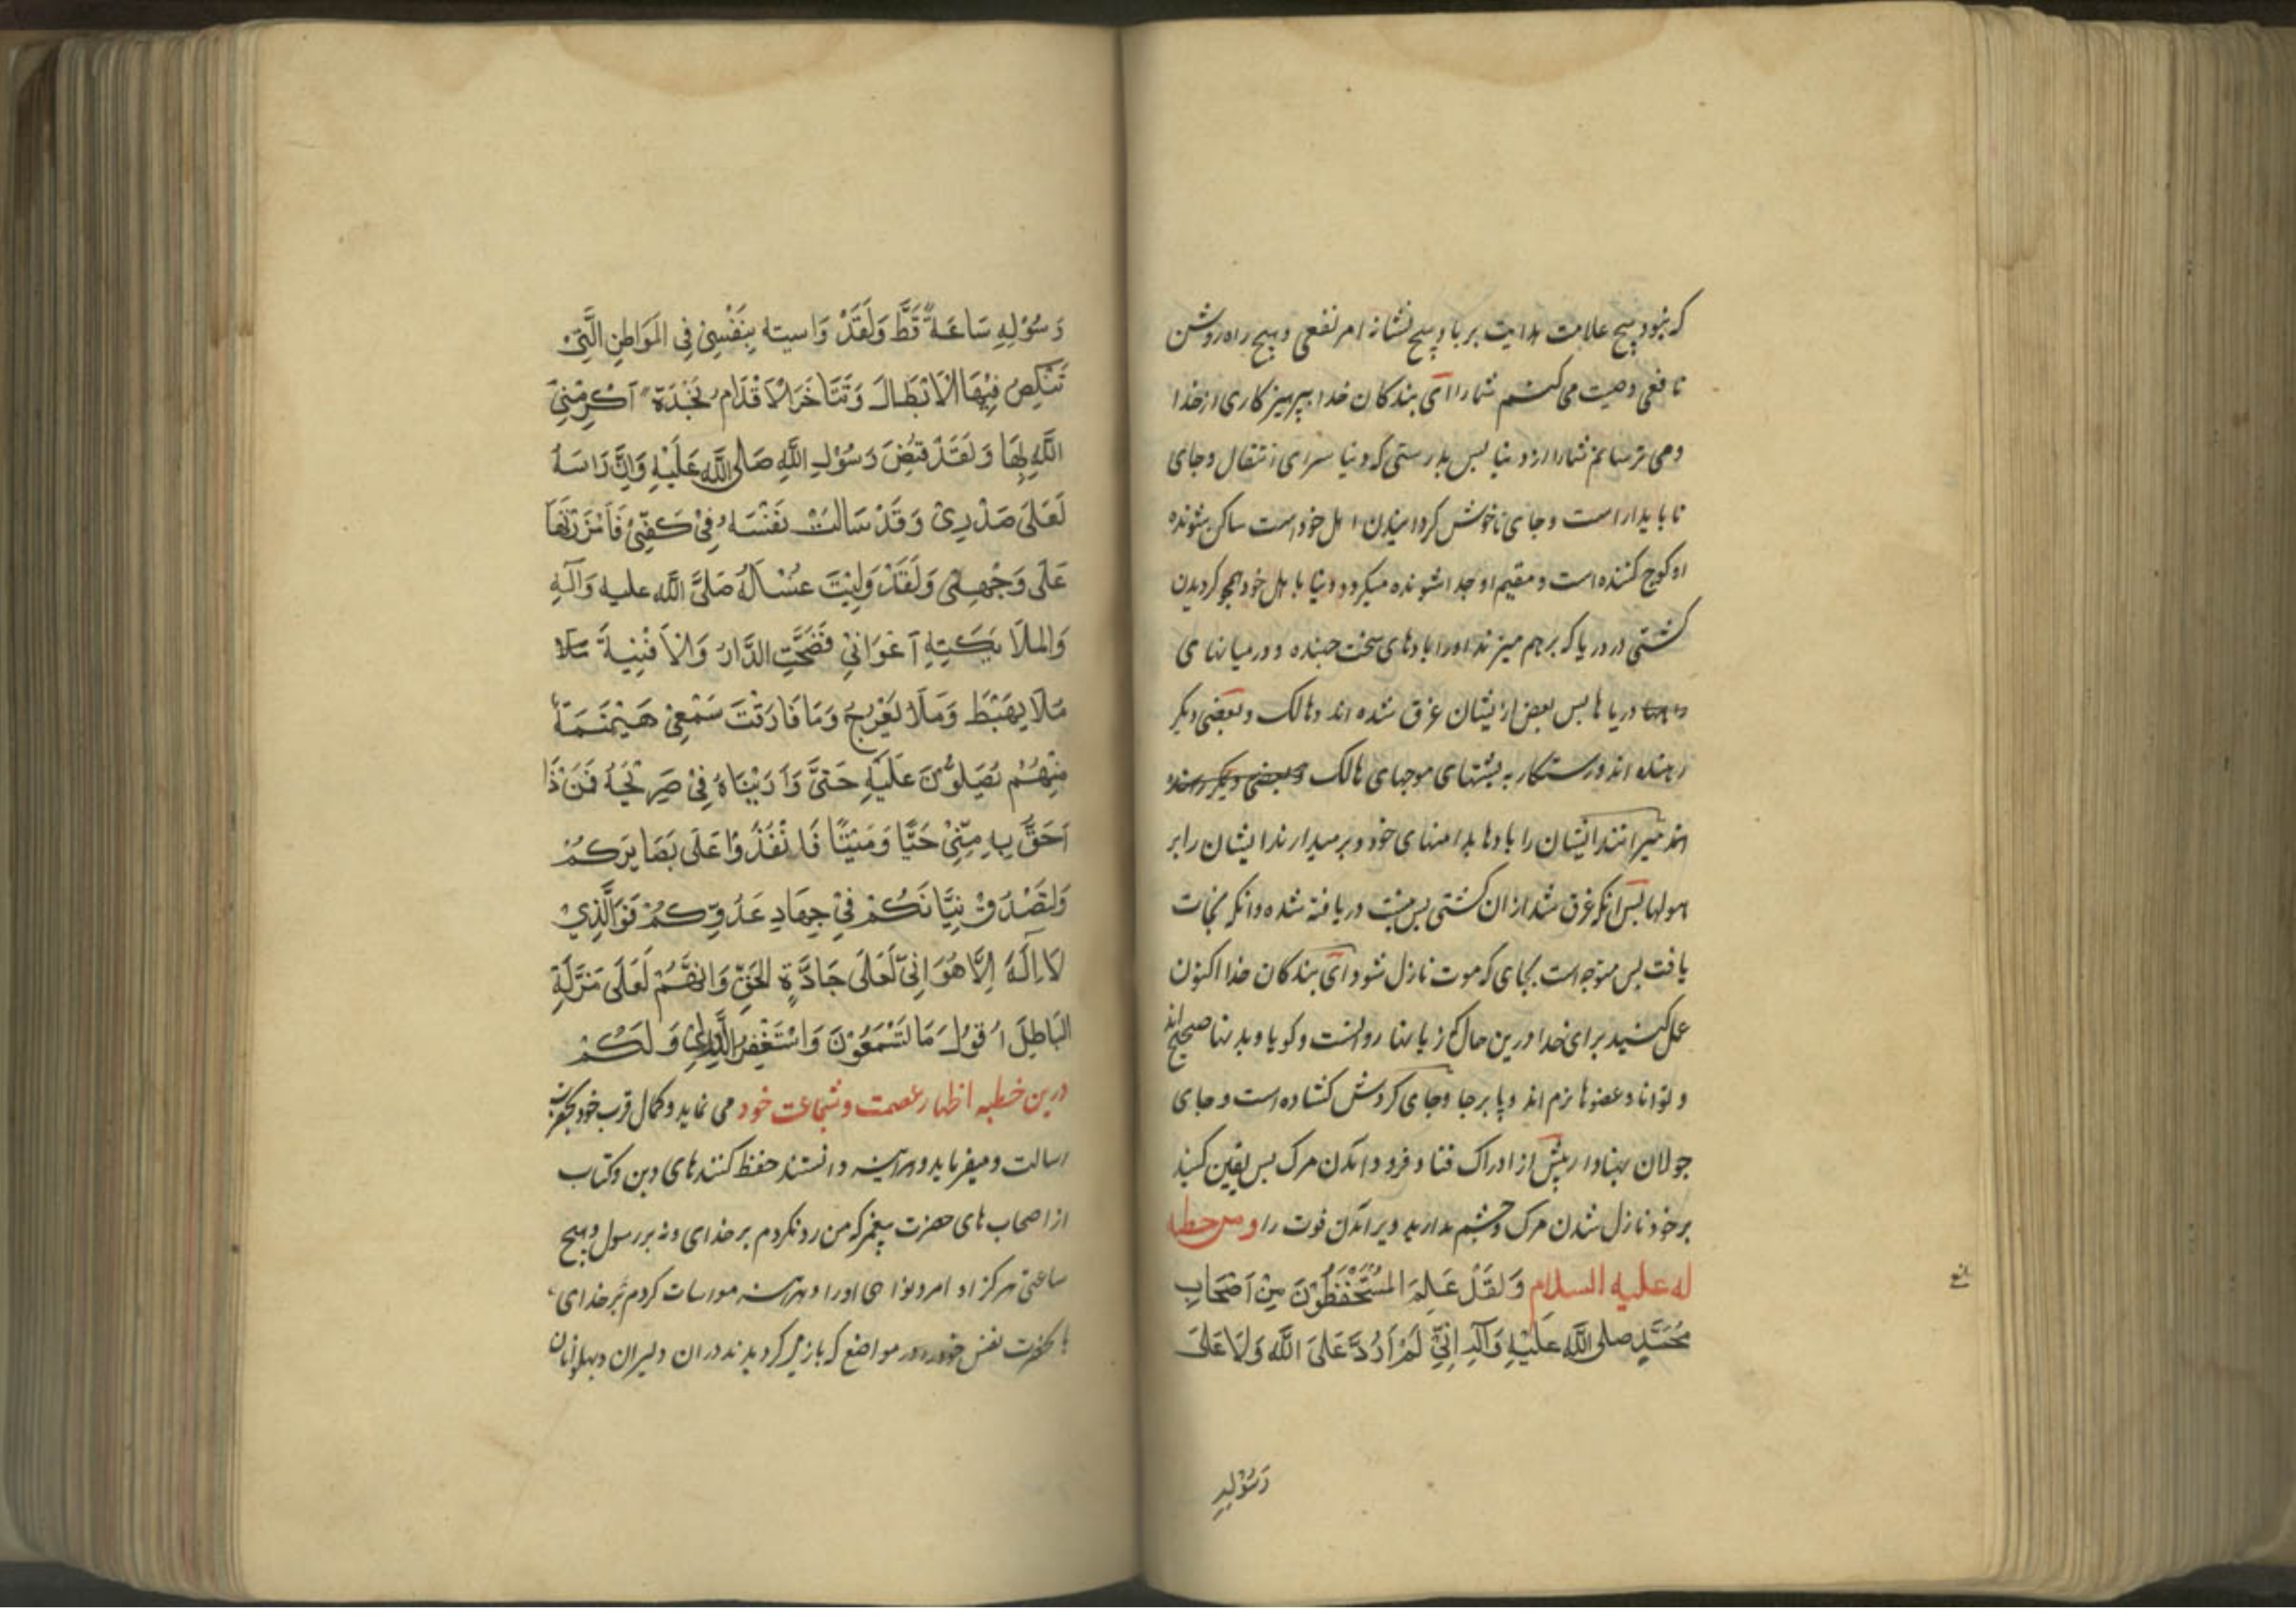 که نبود هیچ علامت هدایت بر پا و هیچ نشانه امر نفعی و هیچ راه روشن
نافعی وصیت می کنم شما را ای بندکان خدا بپرهیز کاری از خدا
و می ترسانم شما را از دنیا بس بدرستی که دنیا سرای انتقال و جای
ناپایدار است و جای ناخوش کردانیدن اهل خود است ساکن شونده
او کوچ کننده است و مقیم او جدا شونده میکردد دنیا با اهل خود همچو کردیدن
کشتی در دریا که بر هم میزند او را بادهای سخت جهنده و در میانهای
دریا ها بس بعض ازیشان غرق شده اند و هالک و بعضی دیکر
رهنده اند و رستکار به پشتهای موجهای هالک و بعضی دیکر
اند میرانند ایشان را بادها بدامنهای خود و بر میدارند ایشان را بر
هولها بس آنکه غرق شد از ان کشتی بس نیست دریافته شده و انکه نجات
یافت بس متوجه است بجای که موت نازل شود ای بندکان خدا اکنون
عمل کنید برای خدا درین حال که زبانها روانست و کویا و بدنها صحیح اند
و توانا و عضوها نرم اند و پا برجا و جای کردش کشاده است و جای
جولان پهناوار پیش از ادراک فنا و فرود آمدن مرک بس یقین کنید
بر خود نازل شدن مرک و چشم مدارید دیر آمدن فوت را ومن خطبه
له علیه السلام وَلَقَدْ عَلِمَ المُسْتَحْفَظُوْنَ مِنْ اَصْحَابِ
مُحَمَّدٍ صلی اللَّه عَلَیْهِ وَآلِهِ اِنِّی لَمْ اَرُدَّ عَلَی اللَّه وَلَا عَلَی
رَسُوْلِهِ
وَسُوْلِهِ سَاعَةً قَطُّ وَلَقَدْ وَاسیته بِنَفْسِیْ فِی المَوَاطِنِ الَّتِیْ
تَنْکِصُ فِیْهَا الْاَبْطَال وَتَتَاَخَّرَ الْاَقْدَام نَجْدَةً اَکْرَمَنِیْ
اللَّه بِهَا وَلَقَدْ قُبِضَ رَسُوْل اللَّهِ صَلَی اللَّه عَلَیْهِ وَاِنَّ رَاسَهُ
لَعَلَی صَدْرِیْ وَقَدْ سَالَتْ نَفْسَهُ فِیْ کَفِّیْ فَاَمْرَرْتُهَا
عَلَی وَجْهِیْ وَلَقَدْ وَلِیْتَ غُسْلَهُ صَلَّی اللَّه علیه وَآلِهِ
وَالمَلَایِکَتِهِ اَعْوَانِیْ فَضَجَّتِ الدَّارُ وَالْاَفْنِیَةُ
مَلَا یَهْبِطُ وَمَلَا یَعْرُجُ وَمَا فَارَقَتْ سَمْعِیْ هَیْنَمَةً
مِنْهُمْ یُصَلُّوْنَ عَلَیْهِ حَتَّی وَارَیْنَاهُ فِیْ ضَرِیْحَهُ فَمَنْ ذَا
اَحَقُّ بِهِ مِنِّیْ حَیًّا وَمَیْتًا فَانْفُذُوْا عَلَی بَصَایِرَکُمْ
وَلتَصْدُقْ نِیَّاتَکُمْ فِیْ جِهَادِ عَدُوِّکُمْ فَوَالَّذِیْ
لَا اِلَهَ اِلَّا هُوَ اِنِّی لَعَلَی جَادَّةِ الحَقِّ وَاِنَّهُمْ لَعَلَی مَزَلَّةِ
البَاطِلَ اَقُوْلُ مَا تَسْمَعُوْنَ وَاسْتَغْفِرُ اللَّه لِیْ وَلَکُمْ
درین خطبه اظهار عصمت و شجاعت خود می نماید و کمال قرب خود بحضرت
رسالت و میفرماید و هرآینه دانستند حفظ کنندهای دین و کتاب
از اصحاب های حضرت پیغمبر که من رد نکردم بر خدای و نه بر رسول و هیچ
ساعتی هرکز او امر و نواهی او را و هرآینه مواسات کردم بر خدای
بانحضرت نفس خود در مواضع که باز می کردیدند دران دلیران و پهلوانان